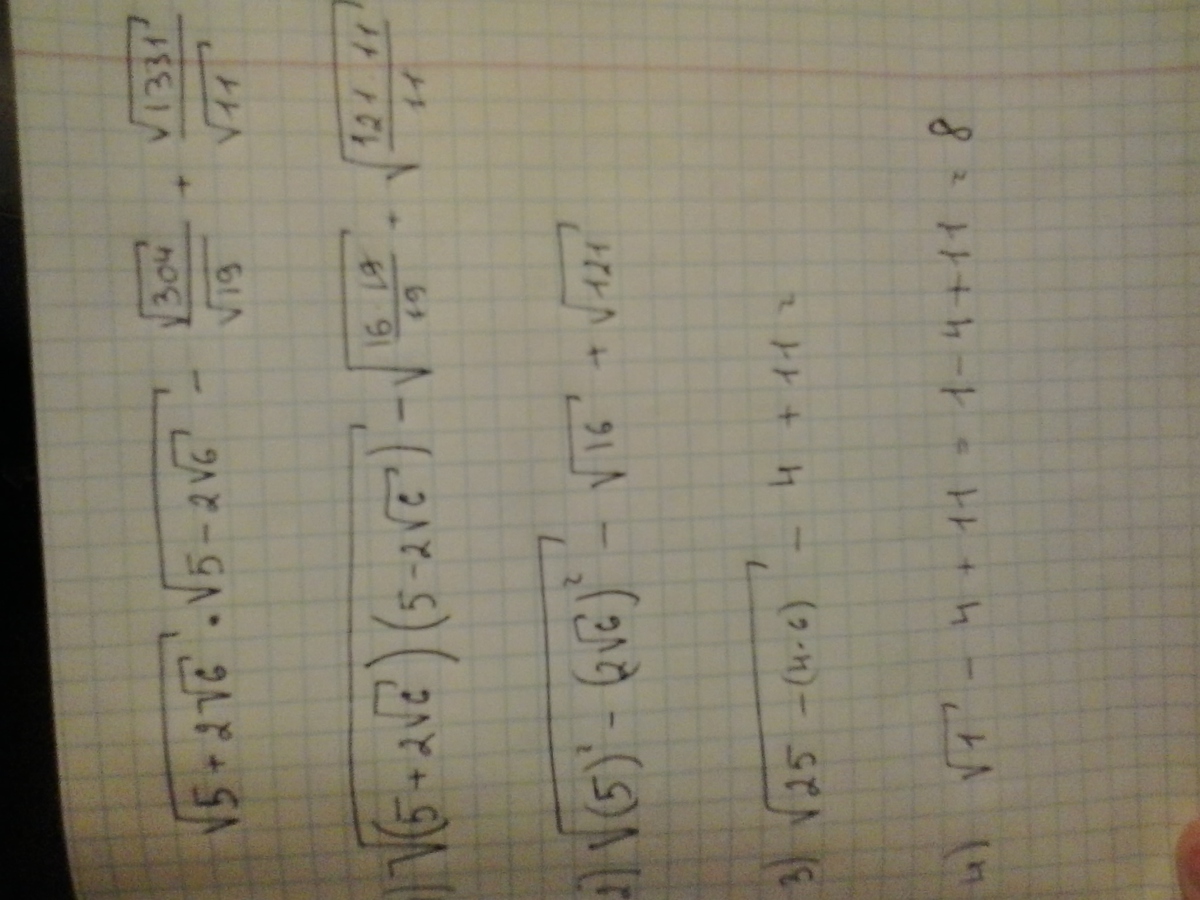 √(5+2√6) · √(5-2√6) - √304/√19 + √1331/√11
1) √((5+2√6)(5-2√6)) - √(16 19/19) + √(121 11/11)
2) √((5)² - (2√6)²) - √16 + √121
3) √(25 - (4·6)) - 4 + 11 =
4) √1 - 4 + 11 = 1 - 4 + 11 = 8